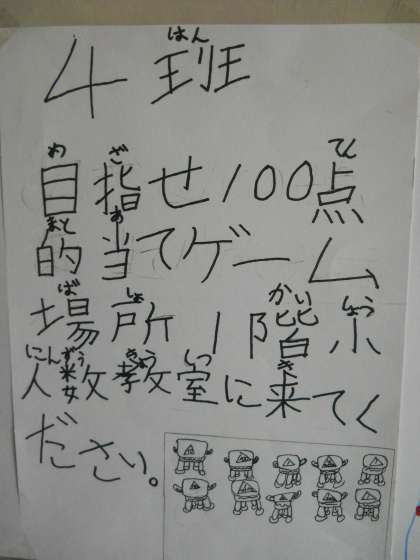 はん
4班
めざ てん
目指せ100点
まとあ
的当てゲーム
ばしょ かいしょう
場所1階小
にんずうきょうしつ き
人数教室に来てく
ださい。